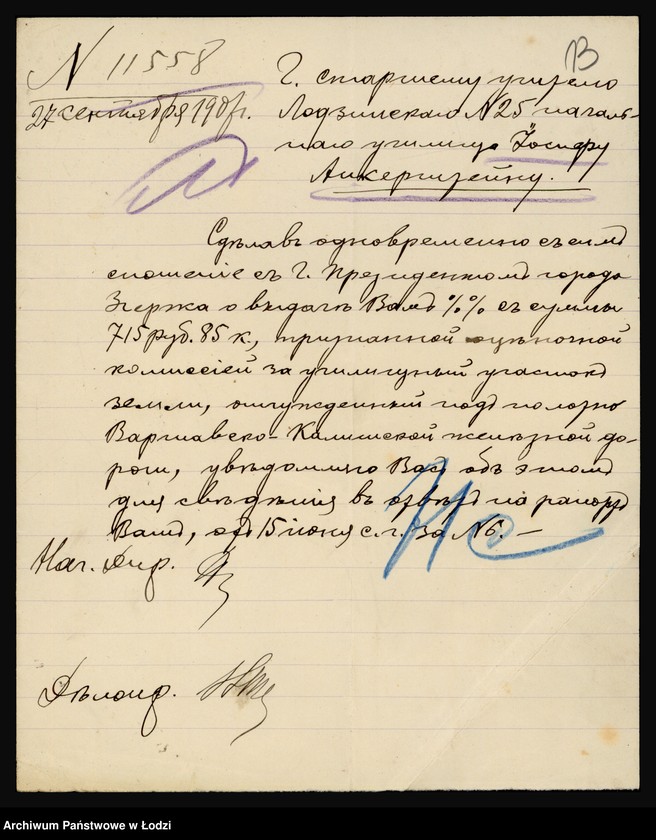 В
N 11558
27 сентября 190 г.
Г. старшему учителю
Лодзинскаго N25 началь-
наго училища Іосифу
Анкерштейну.
Сдѣлавъ одновременно съ симъ
сношеніе съ Г. Президентомъ города
Згержа о выдачѣ Вамъ %% съ суммы
715 руб. 85 к., признанной оцѣночной
комиссіей за училищный участокъ
земли, отчужденный подъ полотно
Варшавско-Калишской желѣзной до-
роги, увѣдомляю Васъ объ этомъ
для свѣдѣнія въ отвѣтъ на рапортъ
Вашъ, отъ 15 іюня с.г. за N6. —
Нач. Дир.
Дѣлопр.
Archiwum Państwowe w Łodzi